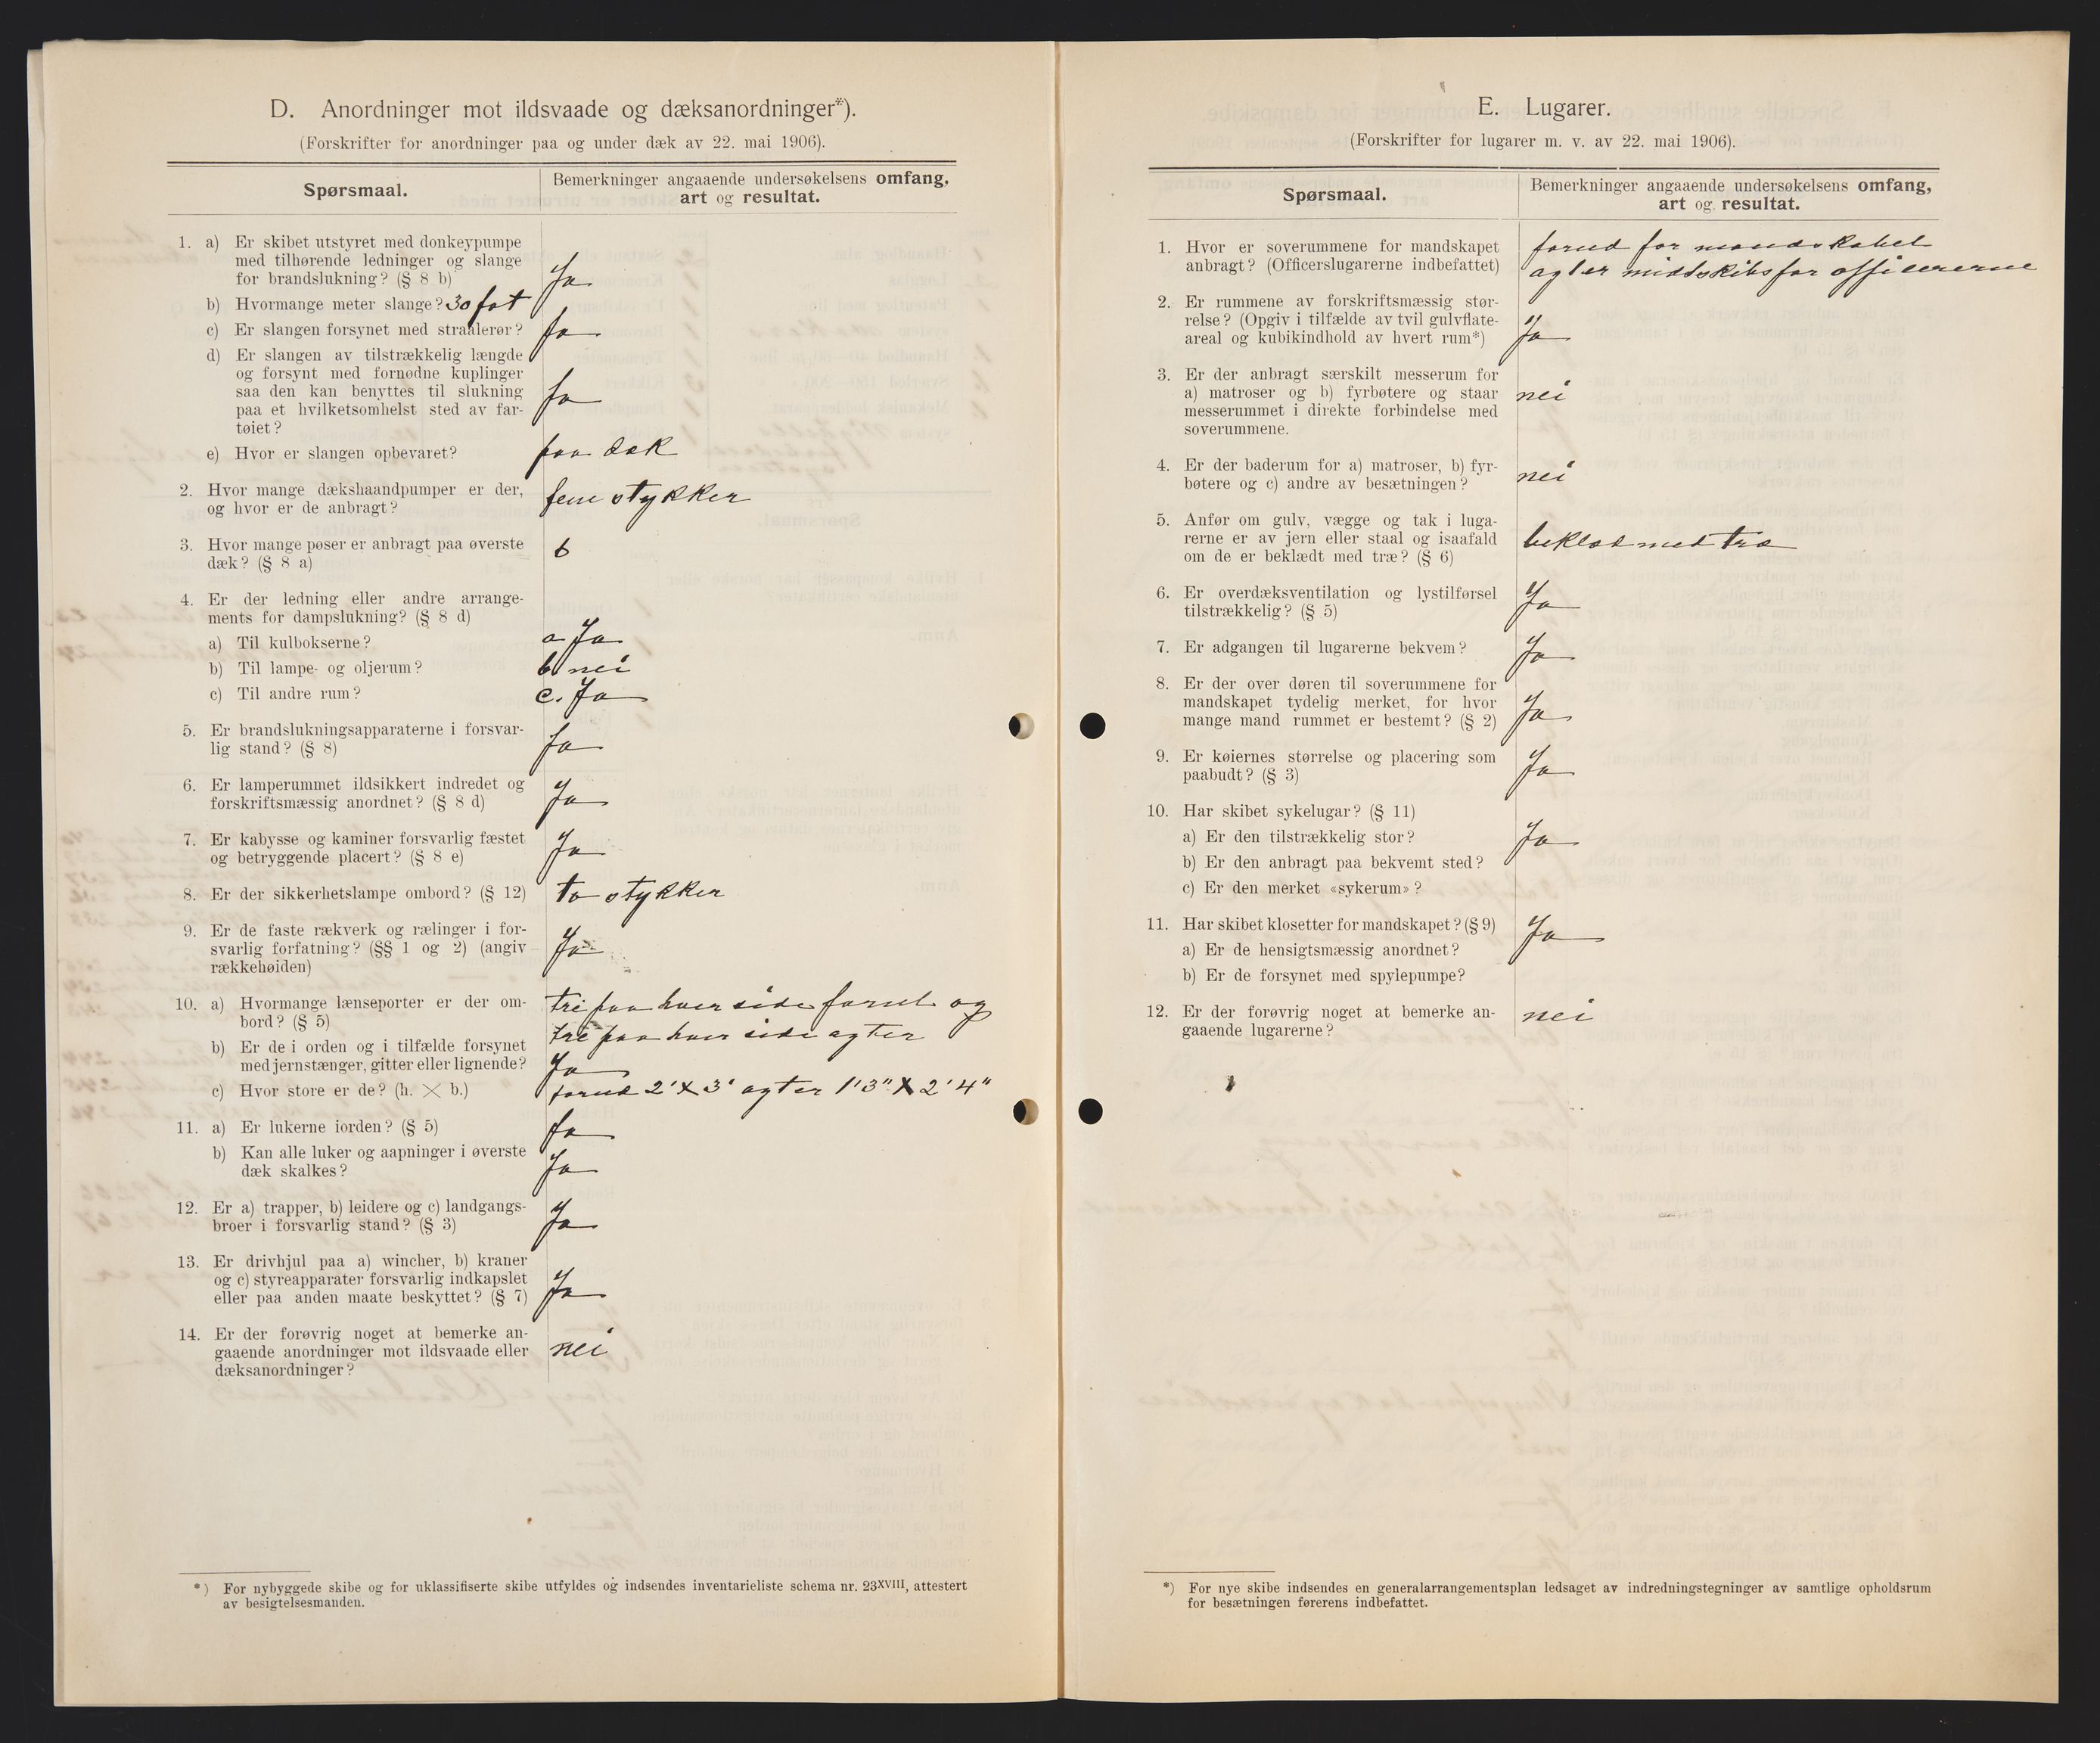 D. Anordninger mot ildsvaade og dæksanordninger*).
(Forskrifter for anordninger paa og under dæk av 22. mai 1906).
Spørsmaal.
Bemerkninger angaaende undersøkelsens omfang,
art og resultat.
1. a) Er skibet utstyret med donkeypumpe
med tilhørende ledninger og slange
for brandslukning? (§ 8 b) Ja
b) Hvormange meter slange? 30 fot
c) Er slangen forsynet med straalerør? Ja
d) Er slangen av tilstrækkelig længde
og forsynt med fornødne kuplinger
saa den kan benyttes til slukning Ja
paa et hvilketsomhelst sted av far-
tøiet?
e) Hvor er slangen opbevaret? paa dæk
2. Hvor mange dækshaandpumper er der, fem stykker
og hvor er de anbragt?
3. Hvor mange pøser er anbragt paa øverste 6
dæk? (§ 8 a)
4. Er der ledning eller andre arrange-
ments for dampslukning? (§ 8 d)
a) Til kulbokserne? a Ja
b) Til lampe- og oljerum? b nei
c) Til andre rum? c. Ja
5. Er brandslukningsapparaterne i forsvar-
lig stand? (§ 8) Ja
6. Er lamperummet ildsikkert indredet og
forskriftsmæssig anordnet? (§ 8 d) Ja
7. Er kabysse og kaminer forsvarlig fæstet
og betryggende placert? (§ 8 e) Ja
8. Er der sikkerhetslampe ombord? (§ 12) to stykker
9. Er de faste rækverk og rælinger i for-
svarlig forfatning? (§§ 1 og 2) (angiv Ja
rækkehøiden)
10. a) Hvormange lænseporter er der om- tri paa hver side forut og
bord? (§ 5) tre paa hver side agter
b) Er de i orden og i tilfælde forsynet
med jernstænger, gitter eller lignende? Ja
c) Hvor store er de? (h. × b.) forud 2' X 3' agter 1'3" X 2'4"
11. a) Er lukerne iorden? (§ 5) Ja
b) Kan alle luker og aapninger i øverste
dæk skalkes? Ja
12. Er a) trapper, b) leidere og c) landgangs-
broer i forsvarlig stand? (§ 3) Ja
13. Er drivhjul paa a) wincher, b) kraner
og c) styreapparater forsvarlig indkapslet
eller paa anden maate beskyttet? (§ 7) Ja
14. Er der forøvrig noget at bemerke an-
gaaende anordninger mot ildsvaade eller nei
dæksanordninger?
*) For nybyggede skibe og for uklassifiserte skibe utfyldes og indsendes inventarieliste schema nr. 23XVIII, attestert
av besigtelsesmanden.
E. Lugarer.
(Forskrifter for lugarer m. v. av 22. mai 1906).
Spørsmaal.
Bemerkninger angaaende undersøkelsens omfang,
art og resultat.
1. Hvor er soverummene for mandskapet forud for mandskabet
anbragt? (Officerslugarerne indbefattet) agter midtskibs for officererne
2. Er rummene av forskriftsmæssig stør-
relse? (Opgiv i tilfælde av tvil gulvflate-
areal og kubikindhold av hvert rum*) Ja
3. Er der anbragt særskilt messerum for
a) matroser og b) fyrbøtere og staar nei
messerummet i direkte forbindelse med
soverummene.
4. Er der baderum for a) matroser, b) fyr-
bøtere og c) andre av besætningen? nei
5. Anfør om gulv, vægge og tak i luga-
rerne er av jern eller staal og isaafald beklæd med træ
om de er beklædt med træ? (§ 6)
6. Er overdæksventilation og lystilførsel
tilstrækkelig? (§ 5) Ja
7. Er adgangen til lugarerne bekvem? Ja
8. Er der over døren til soverummene for
mandskapet tydelig merket, for hvor
mange mand rummet er bestemt? (§ 2) Ja
9. Er køiernes størrelse og placering som
paabudt? (§ 3) Ja
10. Har skibet sykelugar? (§ 11)
a) Er den tilstrækkelig stor? Ja
b) Er den anbragt paa bekvemt sted?
c) Er den merket «sykerum»?
11. Har skibet klosetter for mandskapet? (§ 9) Ja
a) Er de hensigtsmæssig anordnet?
b) Er de forsynet med spylepumpe?
12. Er der forøvrig noget at bemerke an- nei
gaaende lugarerne?
*) For nye skibe indsendes en generalarrangementsplan ledsaget av indredningstegninger av samtlige opholdsrum
for besætningen førerens indbefattet.